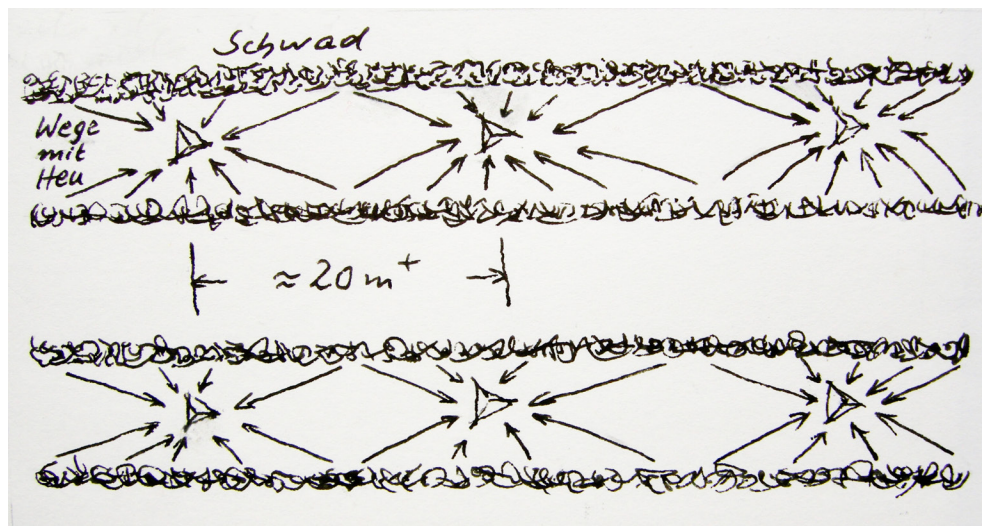 Schwad
Wege
mit
Heu
≈ 20 m +